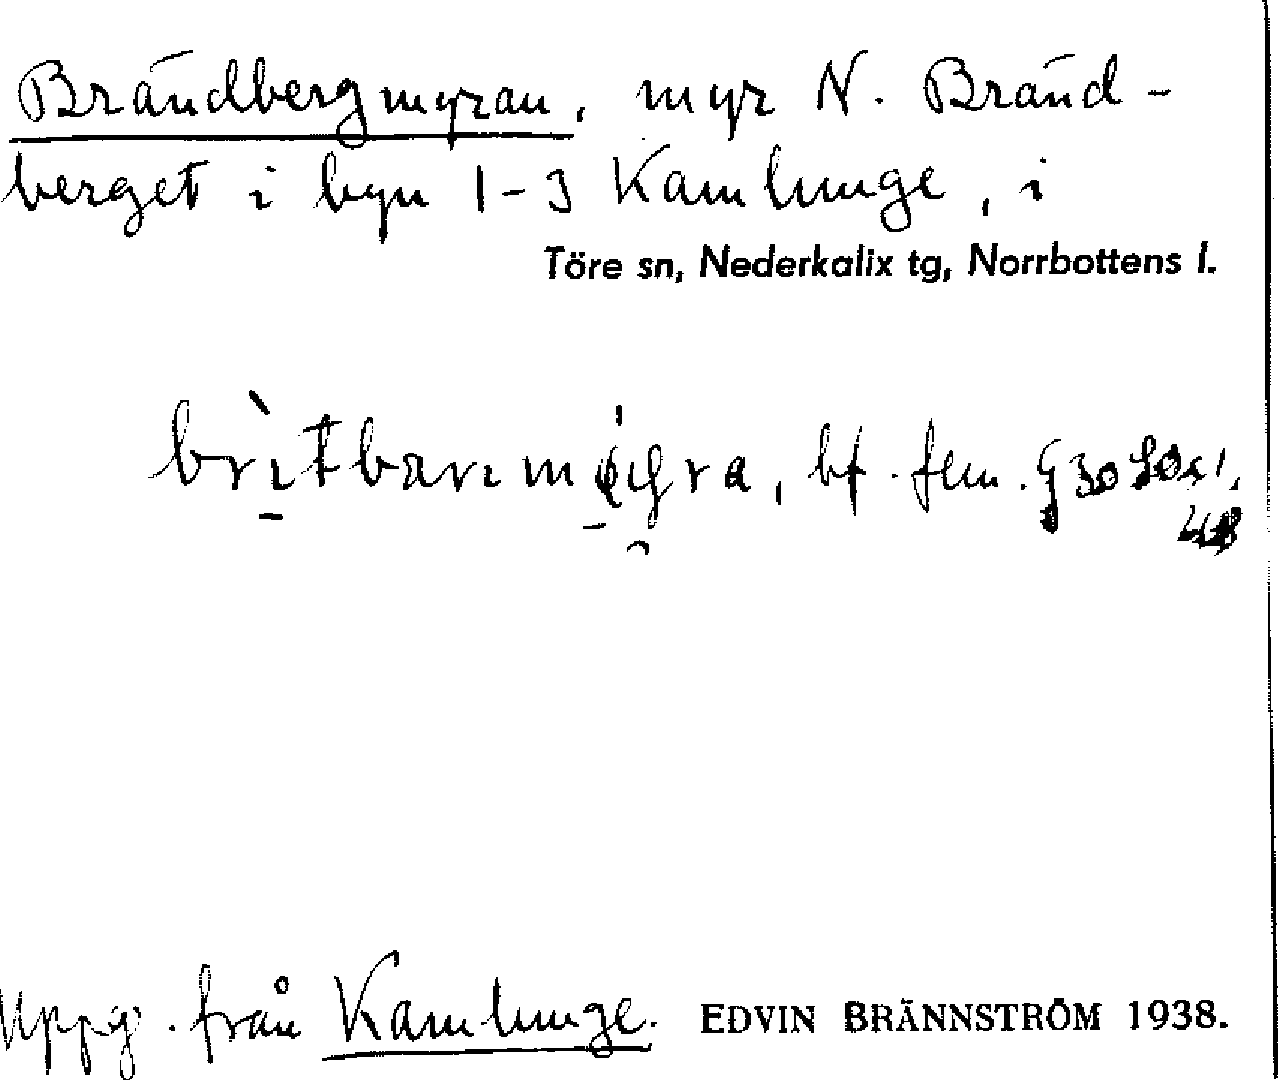 Brändbergmyran, myr N. Bränd-
berget i byn 1-3 Kamlunge, i
Töre sn, Nederkalix tg, Norrbottens l.
bf. fem.
48
Uppg. från Kamlunge. EDVIN BRÄNNSTRÖM 1938.